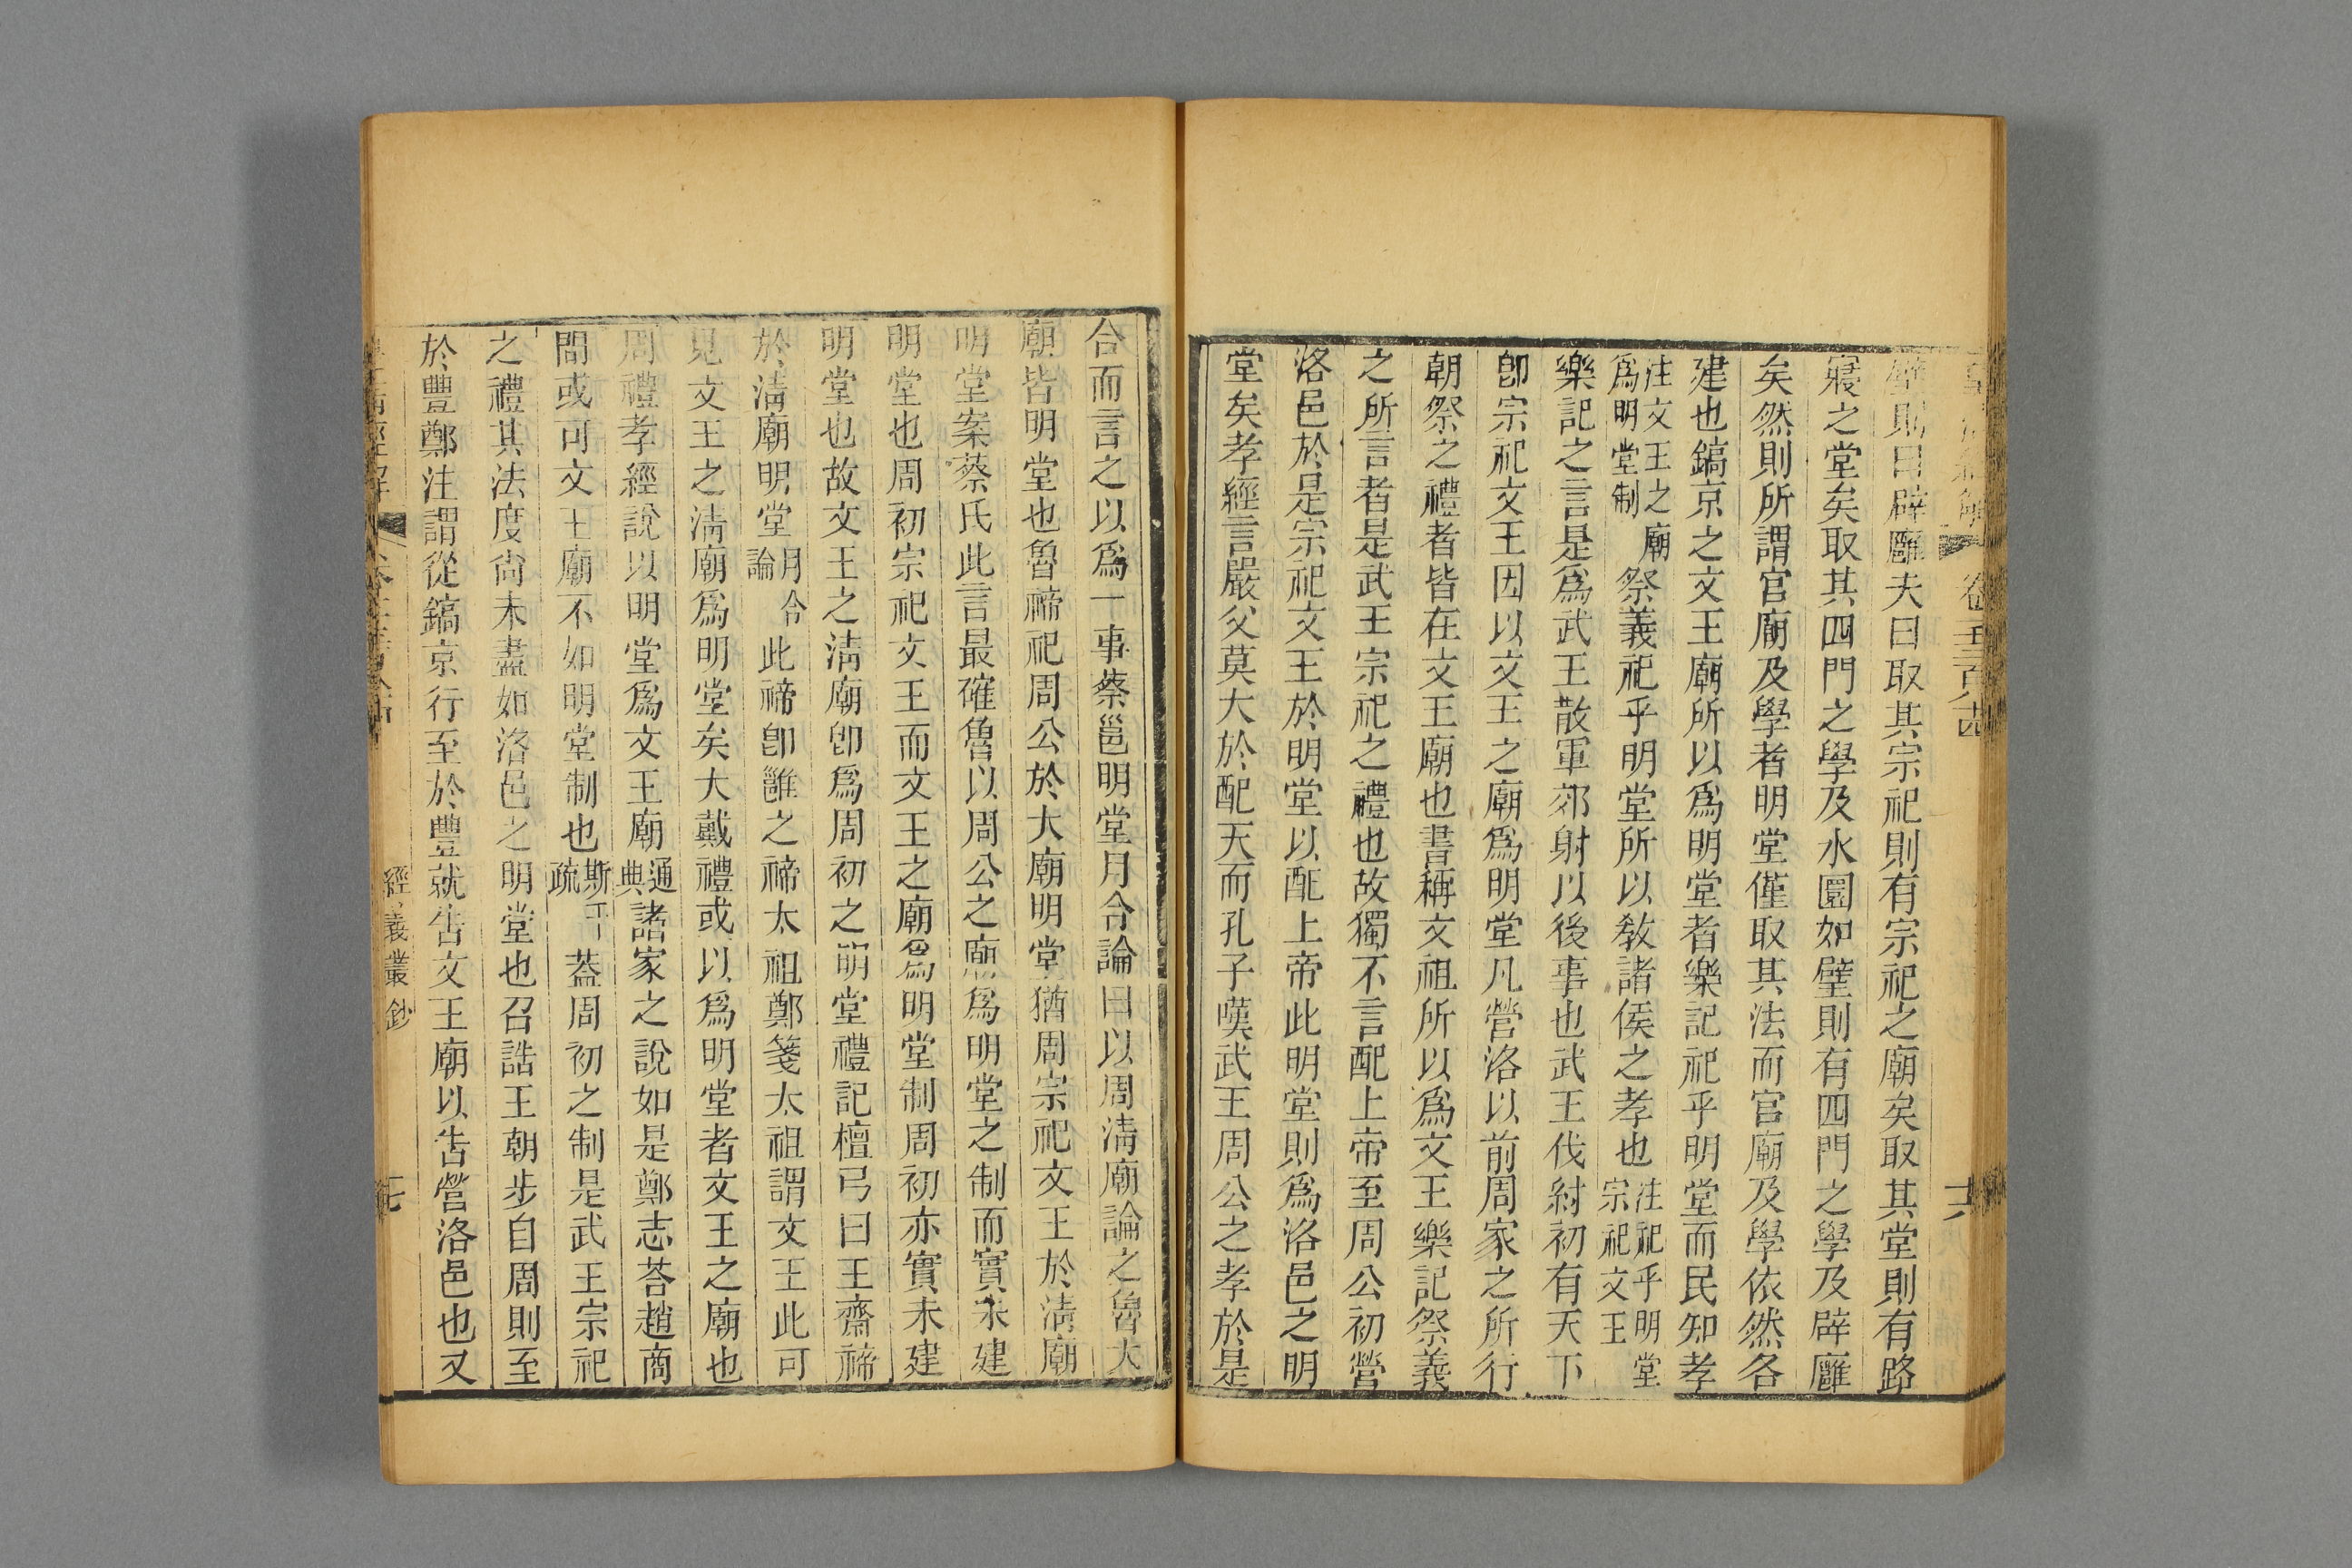 壁則曰辟廱夫曰取其宗祀則有宗祀之廟矣取其堂則有路
寢之堂矣取其四門之學及水圜如璧則有四門之學及辟廱
矣然則所謂官廟及學者明堂僅取其法而官廟及學依然各
建也鎬京之文王廟所以爲明堂者樂記祀乎明堂而民知孝
注文王之廟爲明堂制祭義祀乎明堂所以敎諸侯之孝也注祀乎明堂宗祀文王
樂記之言是爲武王散軍郊射以後事也武王伐紂初有天下
卽宗祀文王因以文王之廟爲明堂凡營洛以前周家之所行
朝祭之禮者皆在文王廟也書稱文祖所以爲文王樂記祭義
之所言者是武王宗祀之禮也故獨不言配上帝至周公初營
洛邑於是宗祀文王於明堂以配上帝此明堂則爲洛邑之明
堂矣孝經言嚴父莫大於配天而孔子嘆武王周公之孝於是
合而言之以爲一事蔡邕明堂月令論曰以周淸廟論之魯大
廟皆明堂也魯禘祀周公於大廟明堂猶周宗祀文王於淸廟
明堂案蔡氏此言最確魯以周公之廟爲明堂之制而實未建
明堂也周初宗祀文王而文王之廟爲明堂制周初亦實未建
明堂也故文王之淸廟卽爲周初之明堂禮記檀弓曰王齋禘
於淸廟明堂月令論此禘卽雝之禘太祖鄭箋太祖謂文王此可
見文王之淸廟爲明堂矣大戴禮或以爲明堂者文王之廟也
周禮孝經說以明堂爲文王廟通典諸家之說如是鄭志荅趙商
問或可文王廟不如明堂制也斯干疏蓋周初之制是武王宗祀
之禮其法度尙未盡如洛邑之明堂也召誥王朝步自周則至
於豐鄭注謂從鎬京行至於豐就告文王廟以告營洛邑也又
經義叢鈔